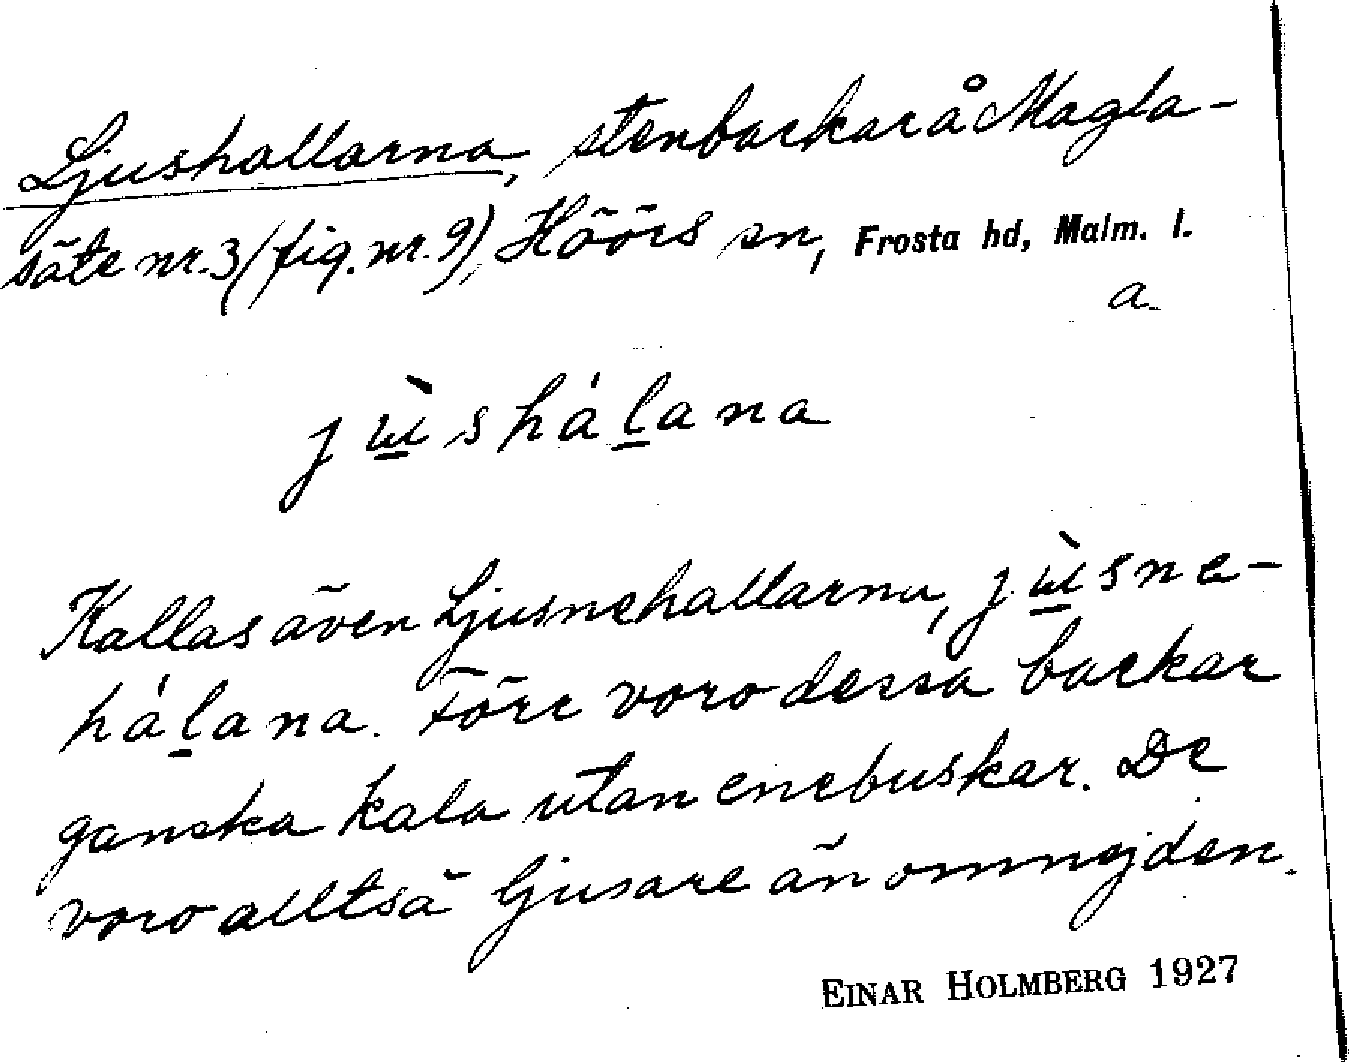 Ljushallarna, stenbackar å Magla-
säte nr. 3 (fig. nr. 9), Höörs sn, Frosta hd, Malm. l.
a.
jɯ̀shálana
Kallas även Ljusnehallarna, jɯ̀sne-
hálana. Förr voro dessa backar
ganska kala utan enebuskar. De
voro alltså ljusare än omnejden.
EINAR HOLMBERG 1927